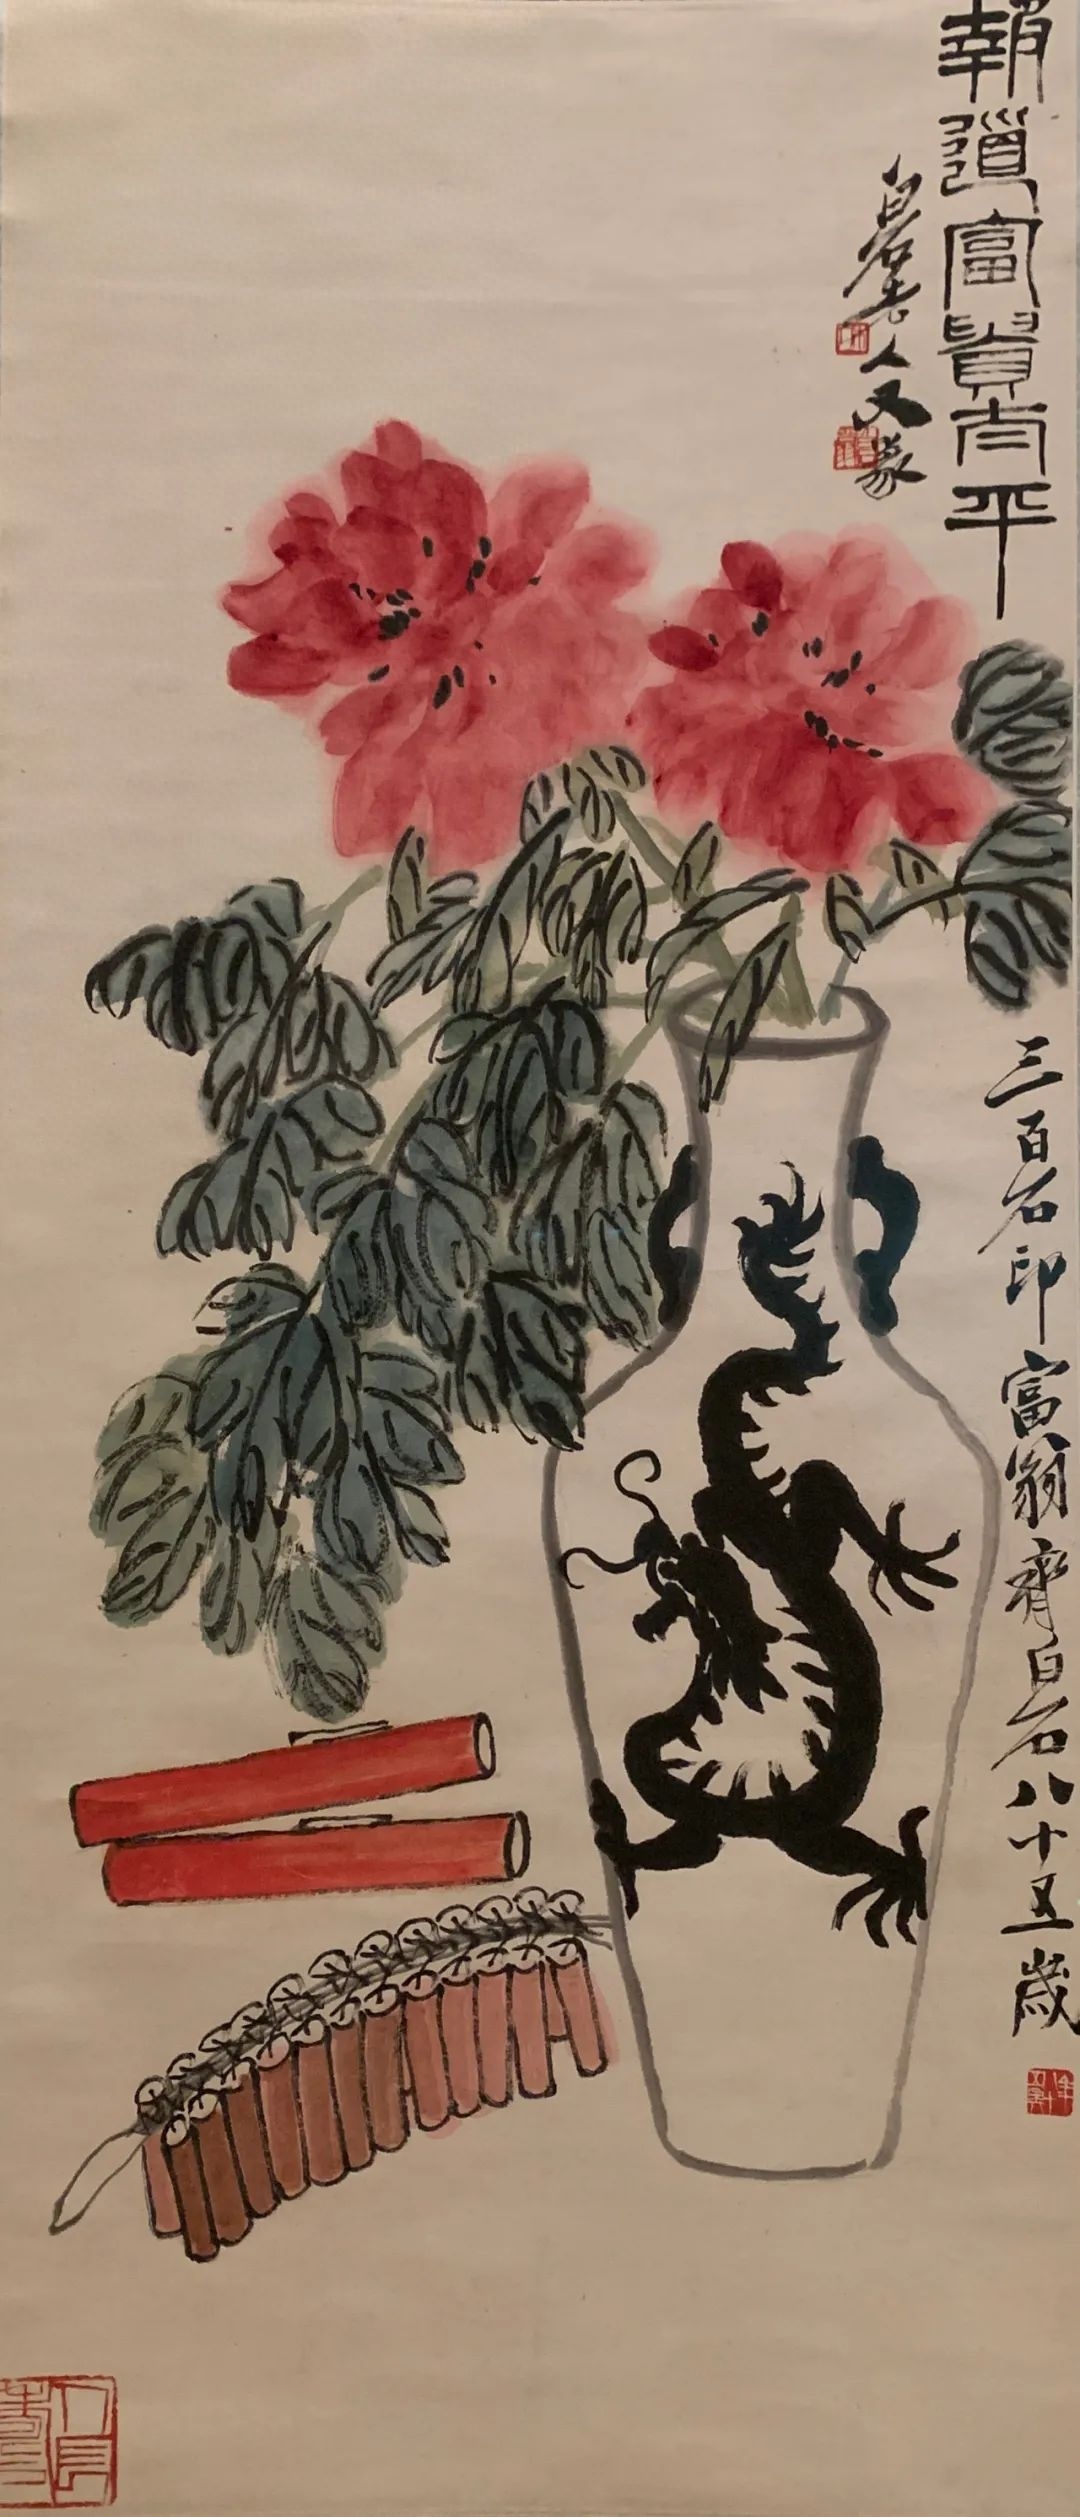 報道富貴太平
白石老人又篆
三百石印富翁齊白石八十五歲
人長壽